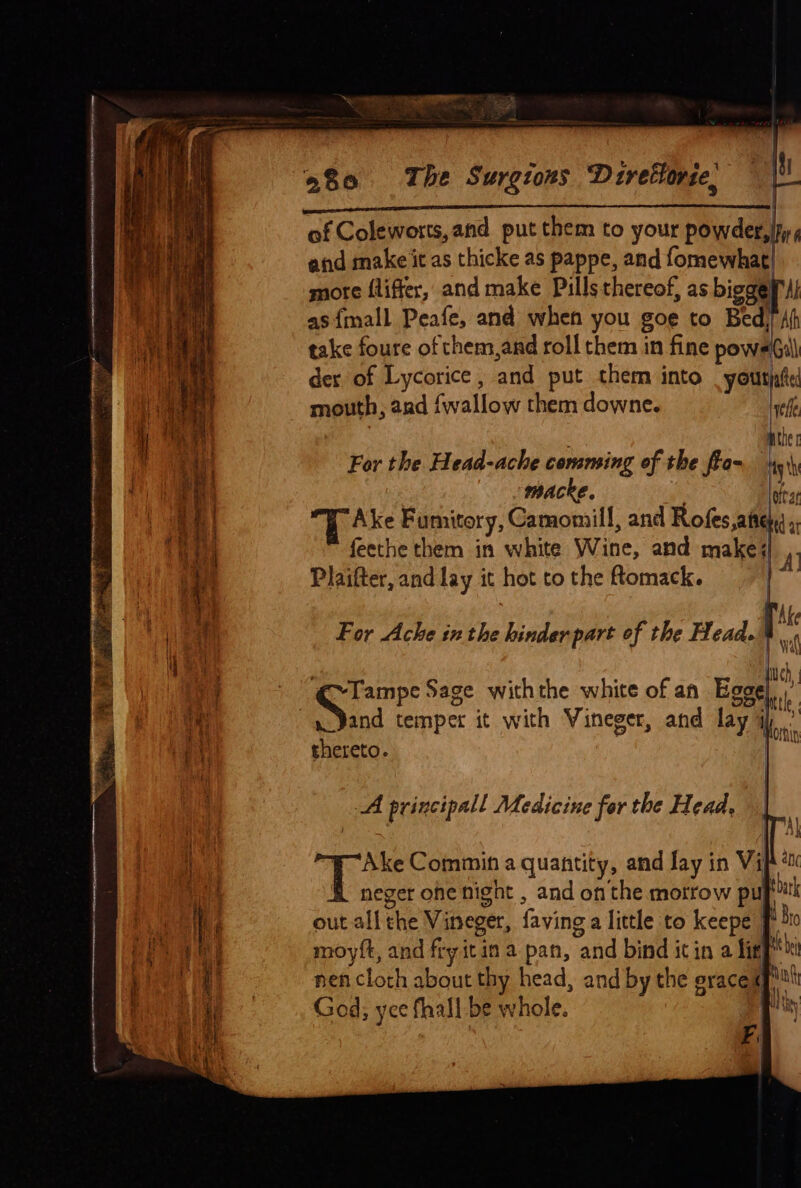 280 The Surgions Directorie,
of Coleworts, and put them to your powder,
and make it as thicke as pappe, and ſomewhat
more ſtiffer, and make Pills thereof, as bigge
as ſmall Peaſe, and when you goe to Bed,
take foure of them, and roll them in fine pow-
der of Lycorice, and put them into your
mouth, and ſwallow them downe.
For the Head-ache comming of the ſto-
macke.
TAke Fumitory, Camomill, and Roſes, and
ſeethe them in white Wine, and make
Plaiſter, and lay it hot to the ſtomack.
For Ache in the hinder part of the Head.
STampe Sage with the white of an Egge,
and temper it with Vineger, and lay
thereto.
A principall Medicine for the Head.
TAke Commin a quantity, and lay in Vi-
neger one night, and on the morrow
out all the Vineger, ſaving a little to keepe
moyſt, and fry it in a pan, and bind it in a lin-
nen cloth about thy head, and by the grace
God, yee ſhall be whole.